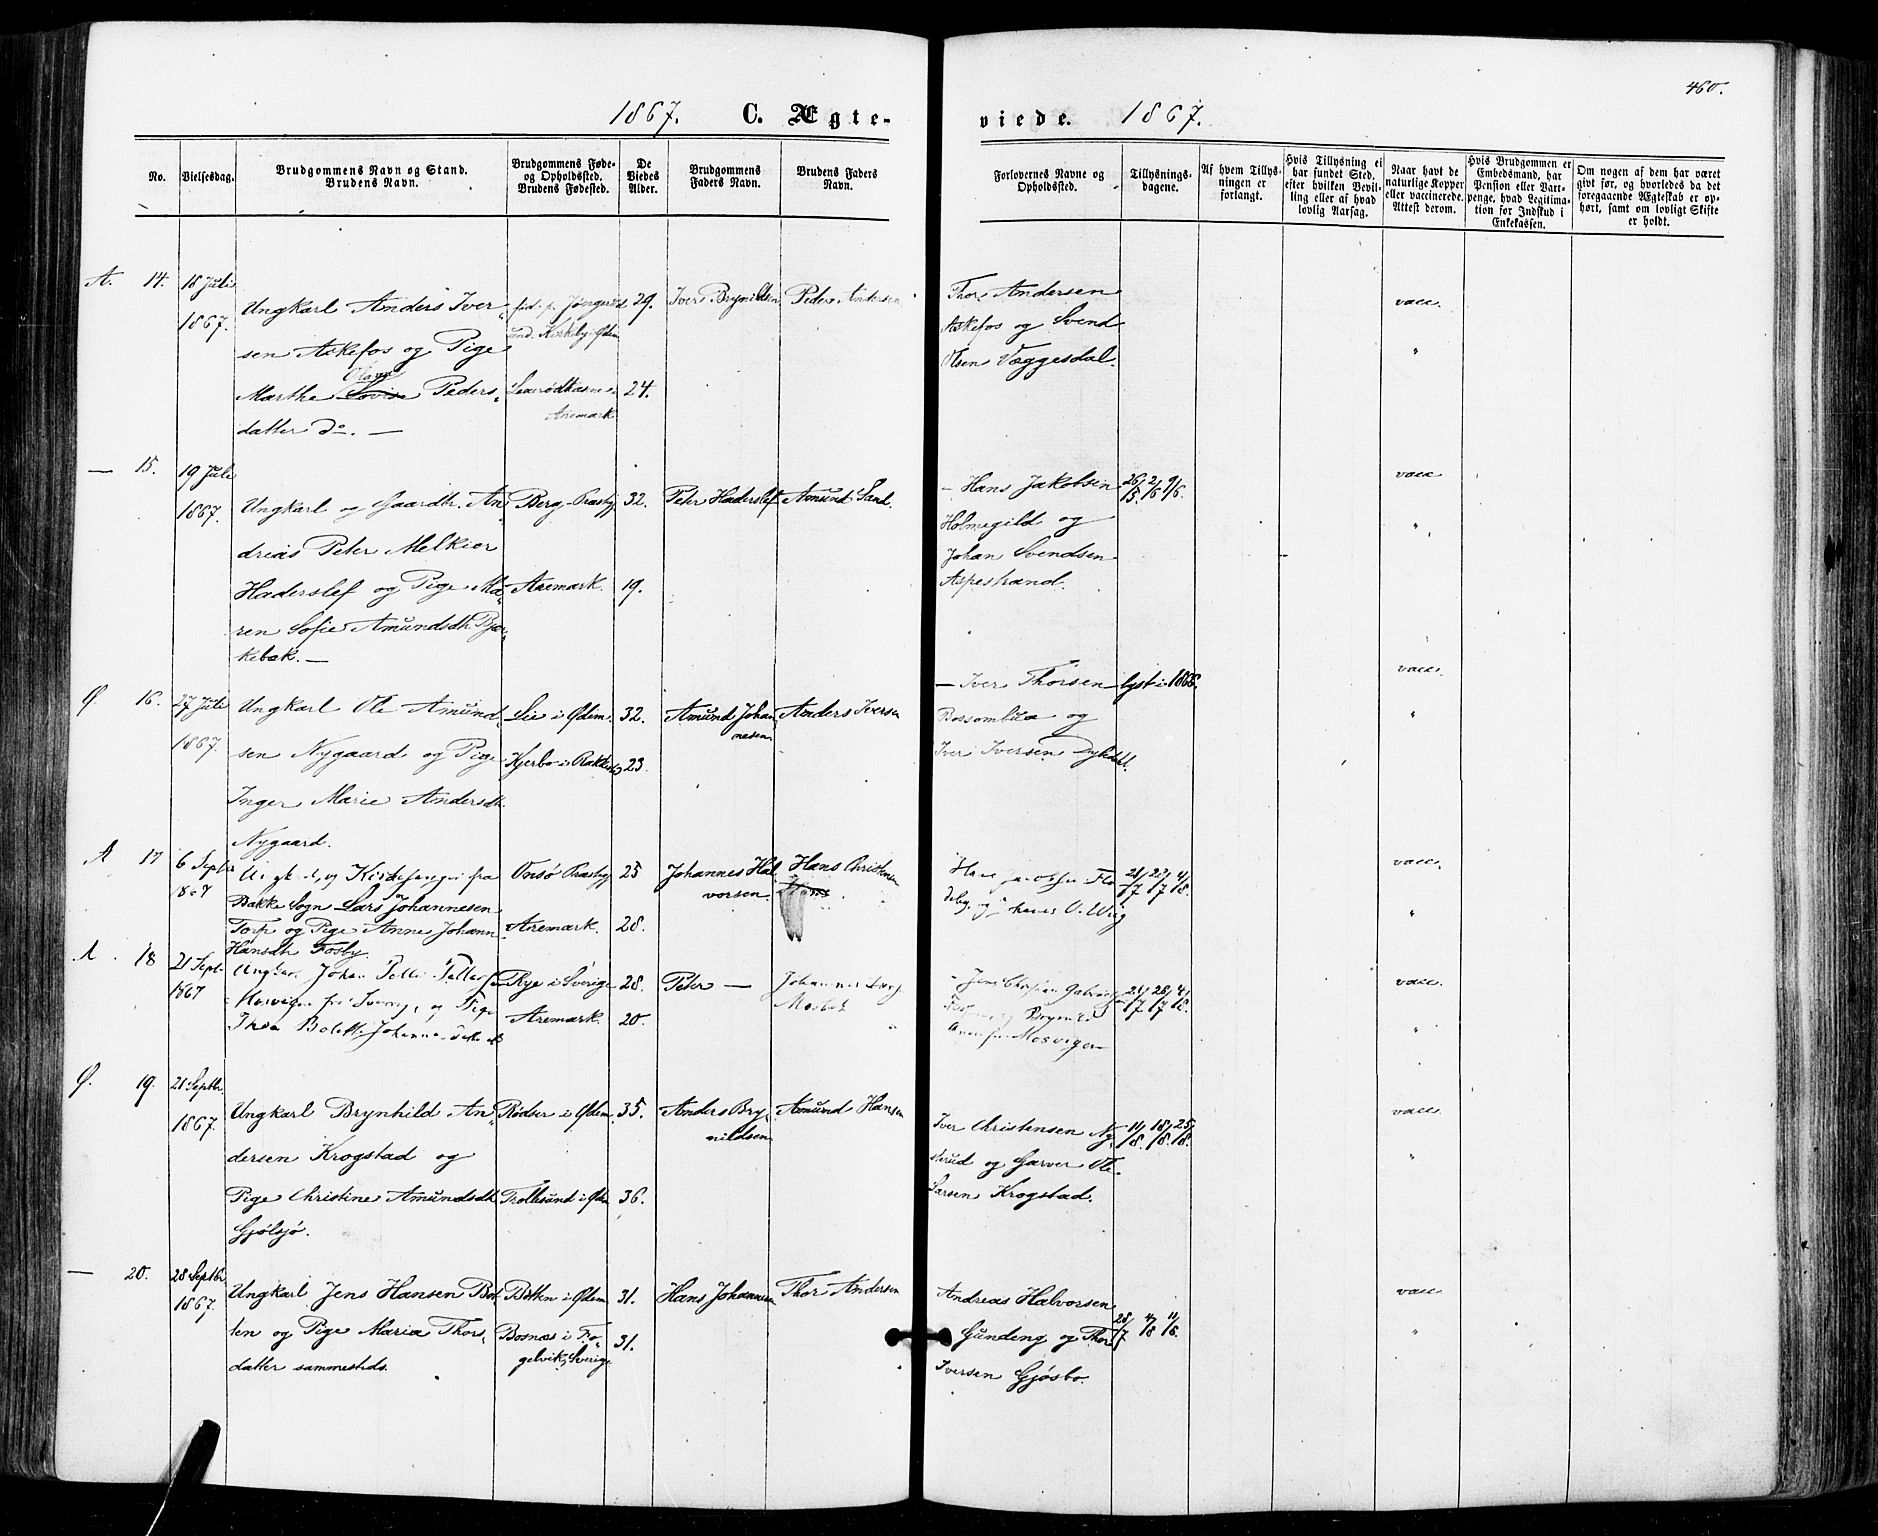 460.
1867. C. Ægte-
viede. 1867.
No.
Vielsesdag.
Brudgommens Navn og Stand.
Brudens Navn.
Brudgommens Føde-
og Opholdssted.
Brudens Fødested.
De
Viedes
Alder.
Brudgommens
Faders Navn.
Brudens Faders
Navn.
Forlovernes Navne og
Opholdssted.
Tillysnings-
dagene.
Af hvem Tillys-
ningen er
forlangt.
Hvis Tillysning ei
har fundet Sted,
efter hvilken Bevil-
ling eller af hvad
lovlig Aarsag.
Naar havt de
naturlige Kopper
eller vaccinerede.
Attest derom.
Hvis Brudgommen er
Embedsmand, har
Pension eller Vart-
penge, hvad Legitima-
tion for Indskud i
Enkekassen.
Om nogen af dem har været
gift før, og hvorledes da det
foregaaende Ægteskab er op-
hørt, samt om lovligt Skifte
er holdt.
A. 14. 18 Juli
1867.
Ungkarl Anders Iver-
sen Askefos og Pige
Marthe Lovise Olava Peders-
datter do. —
29.
24.
Aremark
Iver Brynildsen
Peder Andersen
Thor Andersen
Askefos og Svend
Olsen Væggesdal.
vacc.
"
— 15. 19 Juli
1867.
Ungkarl og Gaardbr. An-
dreas Peter Melkior
Haderslef og Pige Ma-
ren Sofie Amundsdtr. Bjør-
kebæk. —
Berg-Præstgj.
Aremark.
32.
19.
Peter Haderslef
Amund Sand.
— Hans Jakobsen
Holmegild og
Johan Svendsen
Aspestrand.
26/5. 2/6 9/6.
vacc
"
Ø. 16. 27 Juli
1867.
Ungkarl Ole Amund-
sen Nygaard og Pige
Inger Marie Andersdtr.
Nygaard.
Lie i Ødem.
Kjerbo i Rakkestad
32.
23.
Amund Johan-
nesen
Anders Iversen
— Iver Thorsen
og
Iver Iversen
lyst i 1866.
vacc.
"
A 17 6 Septbr
1867
og Kirkesanger fra
Bakke Sogn Lars Johannesen
Torp og Pige Anne Johann
Hansdtr Fosby.
Onsø Præstgj
Aremark.
25
28.
Johannes Hal-
vorsen
Hans Christensen
21/7 4/8.
vacc.
"
A. 18 21 Sept.
1867
Johan
og Pige
Thea
Rye i Sverige
Aremark.
28.
20.
Peter —
Johannes
Jens Christian
Brynild
Mosvigen
21/7 28/7 4/8.
vacc.
"
Ø. 19. 21 Septbr.
1867.
Ungkarl Brynhild An-
dersen Krogstad og
Pige Christine Amundsdtr
Gjølsjø.
Rødser i Ødem.
Trollesund i Ødem
35.
36.
Anders Bry-
nildsen
Amund Hansen
Iver Christensen Ny-
sterud og Garver Ole
Larsen Krogstad.
11/8. 18/8. 25/8.
vacc.
"
— 20. 28 Septbr.
1867.
Ungkarl Jens Hansen Bot-
ten og Pige Maria Thors-
datter sammesteds.
Botten i Ødem
Bosnæs i Fo-
gelvik, Sverige
31.
31.
Hans Johannesen
Thor Andersen
Andreas Halvorsen
Gundeng og Thor
Iversen Gjøsbo.
28/7 4/8 11/8.
vacc
"